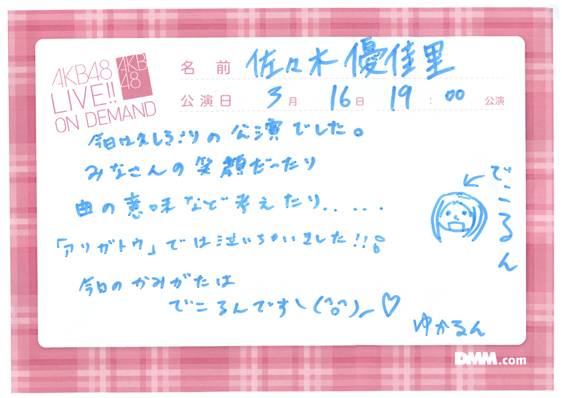 AKB48
LIVE!!
ON DEMAND
AKB
48
名前 佐々木優佳里
公演日 3月16日19:00公演
今日は久しぶりの公演でした。
みなさんの笑顔だったり
曲の意味など考えたり.....
「アリガトウ」では泣いちゃいました!!
今日のかみがたは
でこるんです\(^o^)/♡
でこるん
ゆかるん
DMM.com